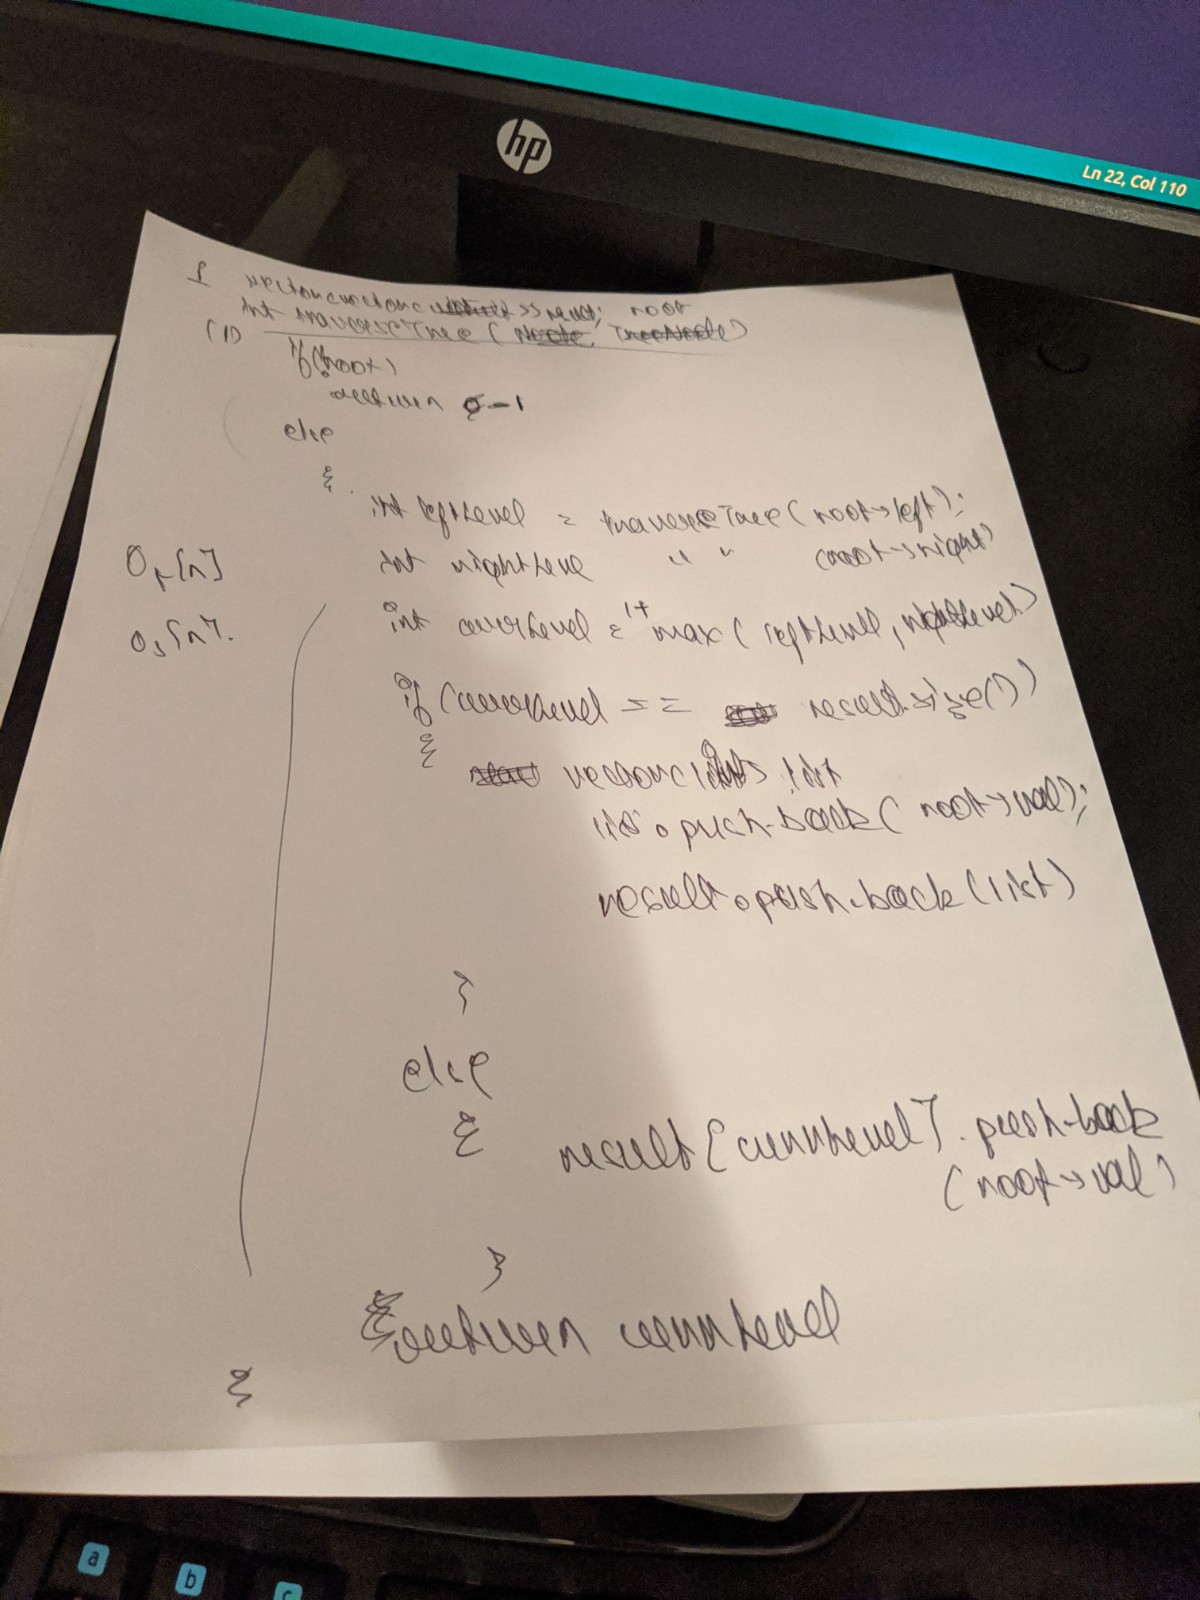 hp
Ln 22, Col 110
1
>> result;
int traverseTree ( root )
(1)
if(!root)
return -1
else
{
int leftLevel = traverseTree (root->left);
int rightLevel " " (root->right)
int currLevel = 1+ max ( leftLevel, rightLevel)
O_T[n]
O_S[n].
if (currLevel == result.size())
{
list
list.push-back( root->val);
result.push-back(list)
}
else
{
result[currLevel].push-back
(root->val)
}
return currLevel
}
a
b
c